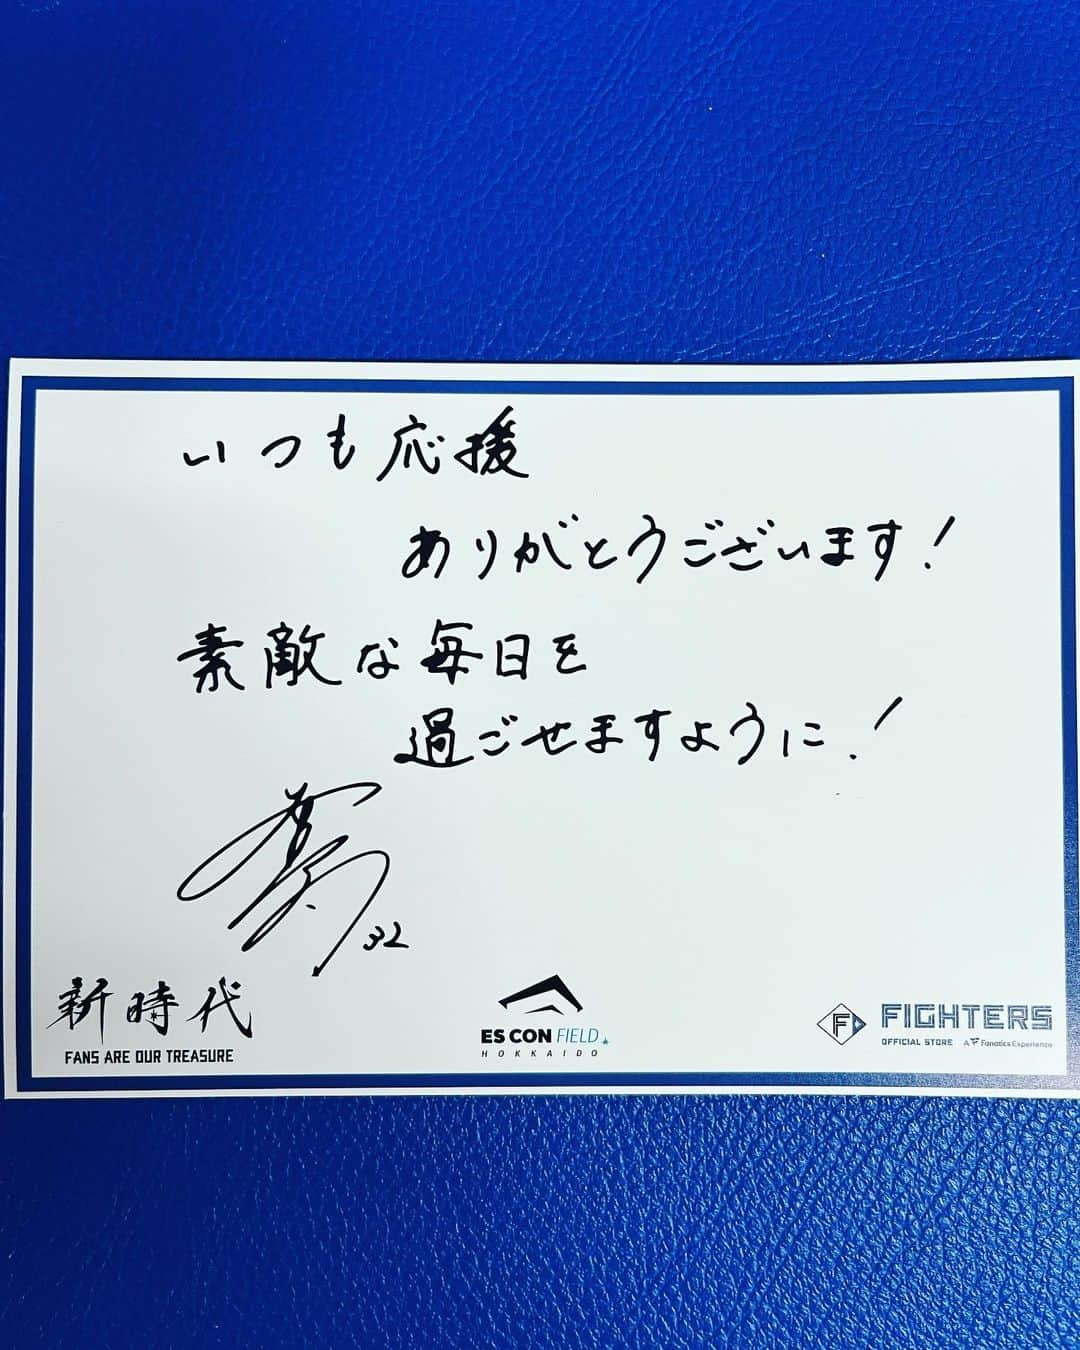 いつも応援
ありがとうございます!
素敵な毎日を
過ごせますように!
32
新時代
FANS ARE OUR TREASURE
ES CON FIELD
HOKKAIDO
F
FIGHTERS
OFFICIAL STORE A Fanatics Experience